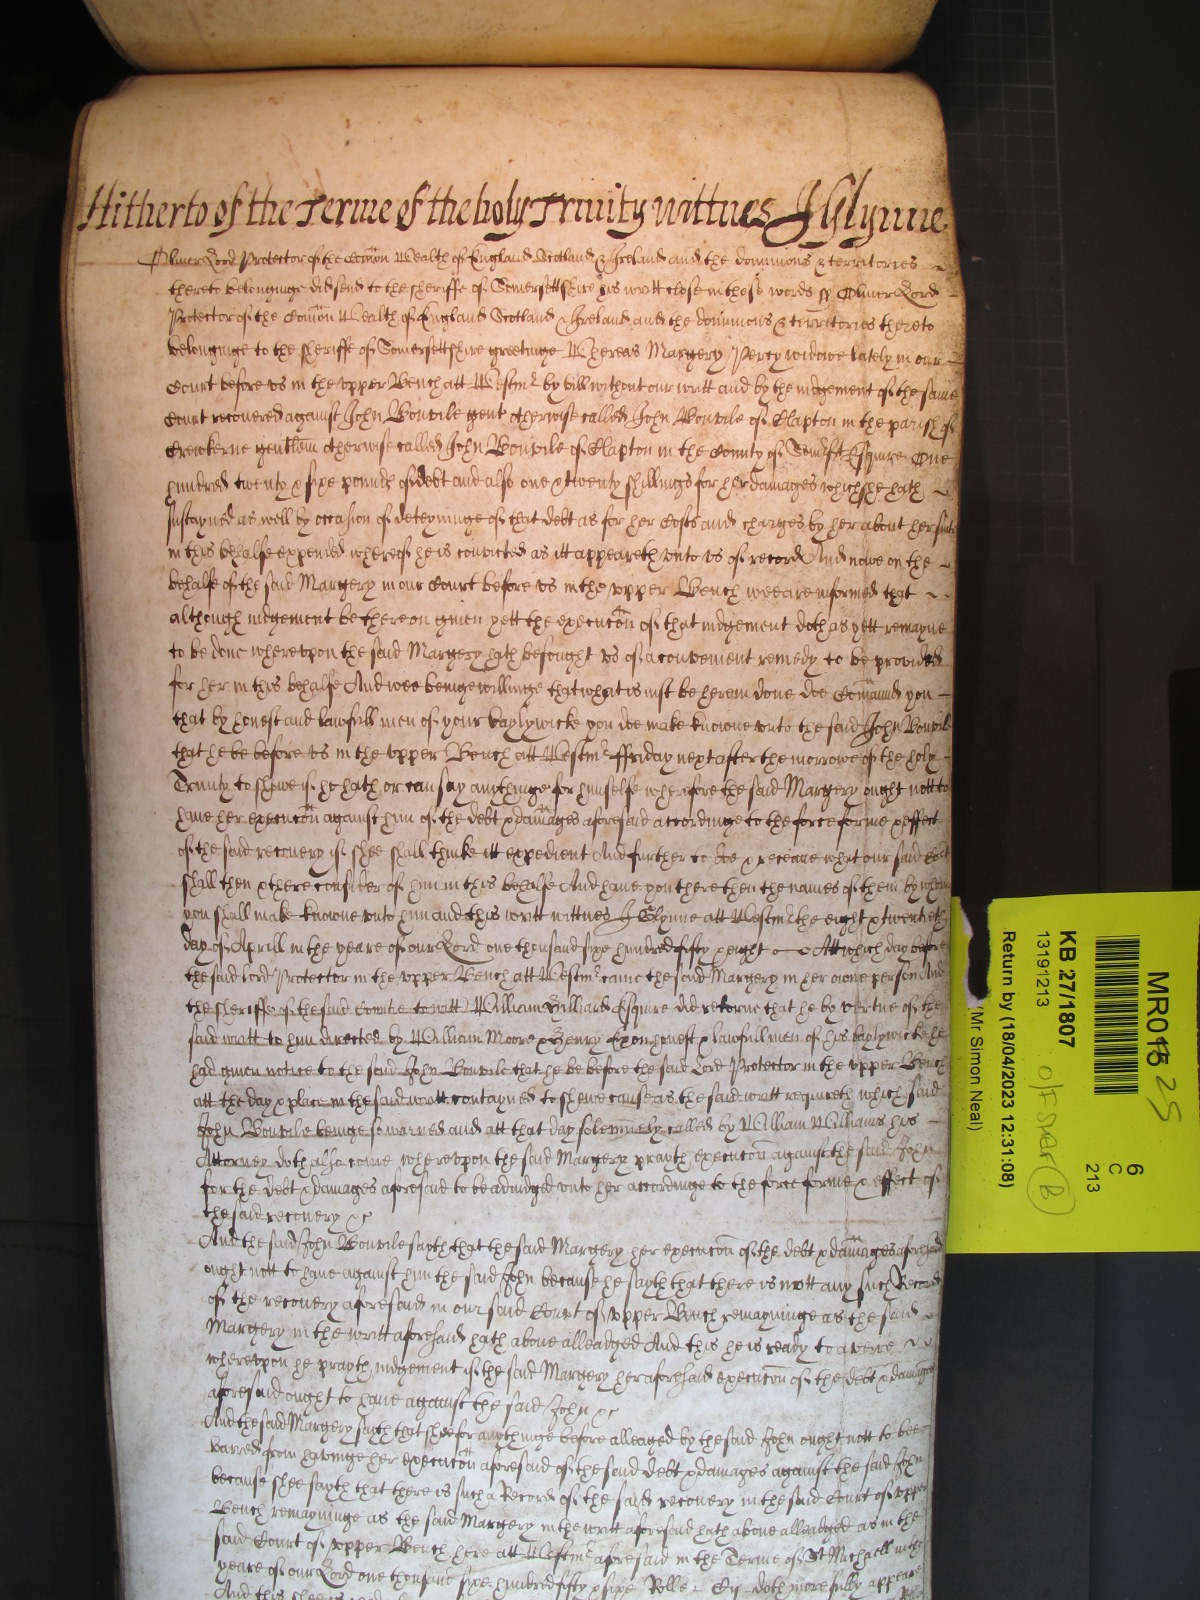 Hitherto of the Terme of the holy Trinity wittnes J Glynne
Oliver Lord Protector of the Comon Wealth of England Scotland & Ireland and the dominions & territories
thereto belonginge did send to the sheriffe of Somersettshire his writt close in these words ss Oliver Lord
Protector of the Comon Wealth of England Scotland & Ireland and the dominions & territories thereto
belonginge to the sheriffe of Somersettshire greetinge Whereas Margery Percy widowe lately in our
Court before us in the upper Bench att Westmr by bill without our writt and by the iudgement of the same
Court recovered against John Bonvile gent otherwise called John Bonvile of Clapton in the parish of
Crewkerne gentlem otherwise called John Bonvile of Clapton in the County of Somst Esquire One
hundred twenty & sixe pounds of debt and also one & twenty shillings for her damages which she hath
sustayned as well by occasion of deteyninge of that debt as for her Costs and charges by her about her suit
in this behalfe expended whereof he is convicted as itt appeareth unto us of record And nowe on the
behalfe of the said Margery in our Court before us in the upper Bench wee are informed that
although iudgement be thereon given yett the execucon of that iudgement doth as yett remayne
to be done whereupon the said Margery hath besought us of a convenient remedy to be provided
for her in this behalfe And wee beinge willinge that what is iust be herein done doe Comaund you
that by honest and lawfull men of your baylywicke you doe make knowne unto the said John Bonvile
that he be before us in the upper Bench att Westmr ffriday next after the morrowe of the holy
Trinity to shewe if he hath or can say anythinge for himselfe wherefore the said Margery ought nott to
have her execucon against him of the debt & damages aforesaid accordinge to the force forme & effect
of the said recovery if shee shall thinke itt expedient And further to doe & receave what our said Court
shall then & there consider of him in this behalfe And have you there then the names of them by whom
you shall make knowne unto him and this writt wittnes J Glynne att Westmr the eight & twentieth
day of Aprill in the yeare of our Lord one thousand sixe hundred fifty & eight Att which day before
the said Lord Protector in the upper Bench att Westmr came the said Margery in her owne person And
the sheriffe of the said Countie to witt William Hilliard Esquire did retorne that he by vertue of the
said writt to him directed by William Moore & Henry Exon honest & lawfull men of his baylywicke he
had given notice to the said John Bonvile that he be before the said Lord Protector in the upper Bench
att the day & place in the said writt contayned to shewe cause as the said writt requireth which said
John Bonvile beinge so warned and att that day solemnely called by William Williams his
Attorney doth also come whereupon the said Margery prayth execucon against the said John
for the debt & damages aforesaid to be adiudged unto her accordinge to the force forme & effect of
the said recovery &c
And the said John Bonvile sayth that the said Margery her execucon of the debt & damages aforesaid
ought nott to have against him the said John because he sayth that there is nott any such Record
of the recovery aforesaid in our said Court of upper Bench remayninge as the said
Margery in the writt aforesaid hath above alleadged And this he is ready to averre
whereupon he prayth iudgement if the said Margery her aforesaid execucon of the debt & damages
aforesaid ought to have against the said John &c
And the said Margery saith that shee for anythinge before alleaged by the said John ought nott to bee
barred from havinge her execucon aforesaid of the said debt & damages against the said John
because shee sayth that there is such a Record of the said recovery in the said Court of upper
Bench remayninge as the said Margery in the writt aforesaid hath above alleadged as in the
said Court of upper Bench here att Westmr aforesaid in the Terme of St Michaell in the
yeare of our Lord one thousand sixe hundred fifty & sixe Rolle doth more fully appeare
And this shee is
MR015 25
6
C
213
KB 27/1807
13191213
Return by (18/04/2023 12:31:08)
(Mr Simon Neal)
B